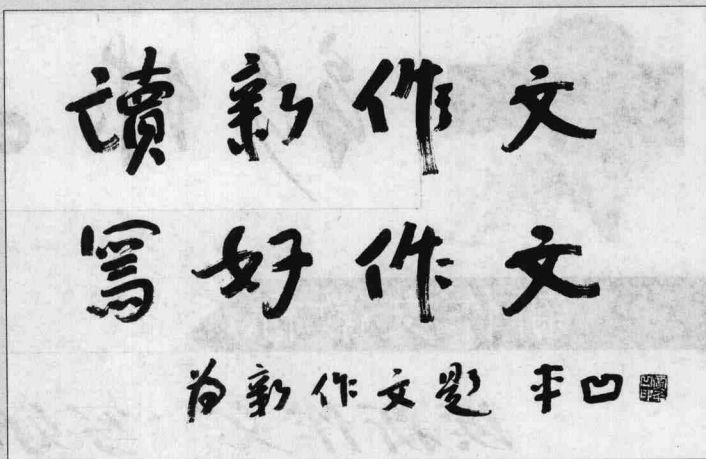 讀新作文
寫好作文
为新作文题 平凹